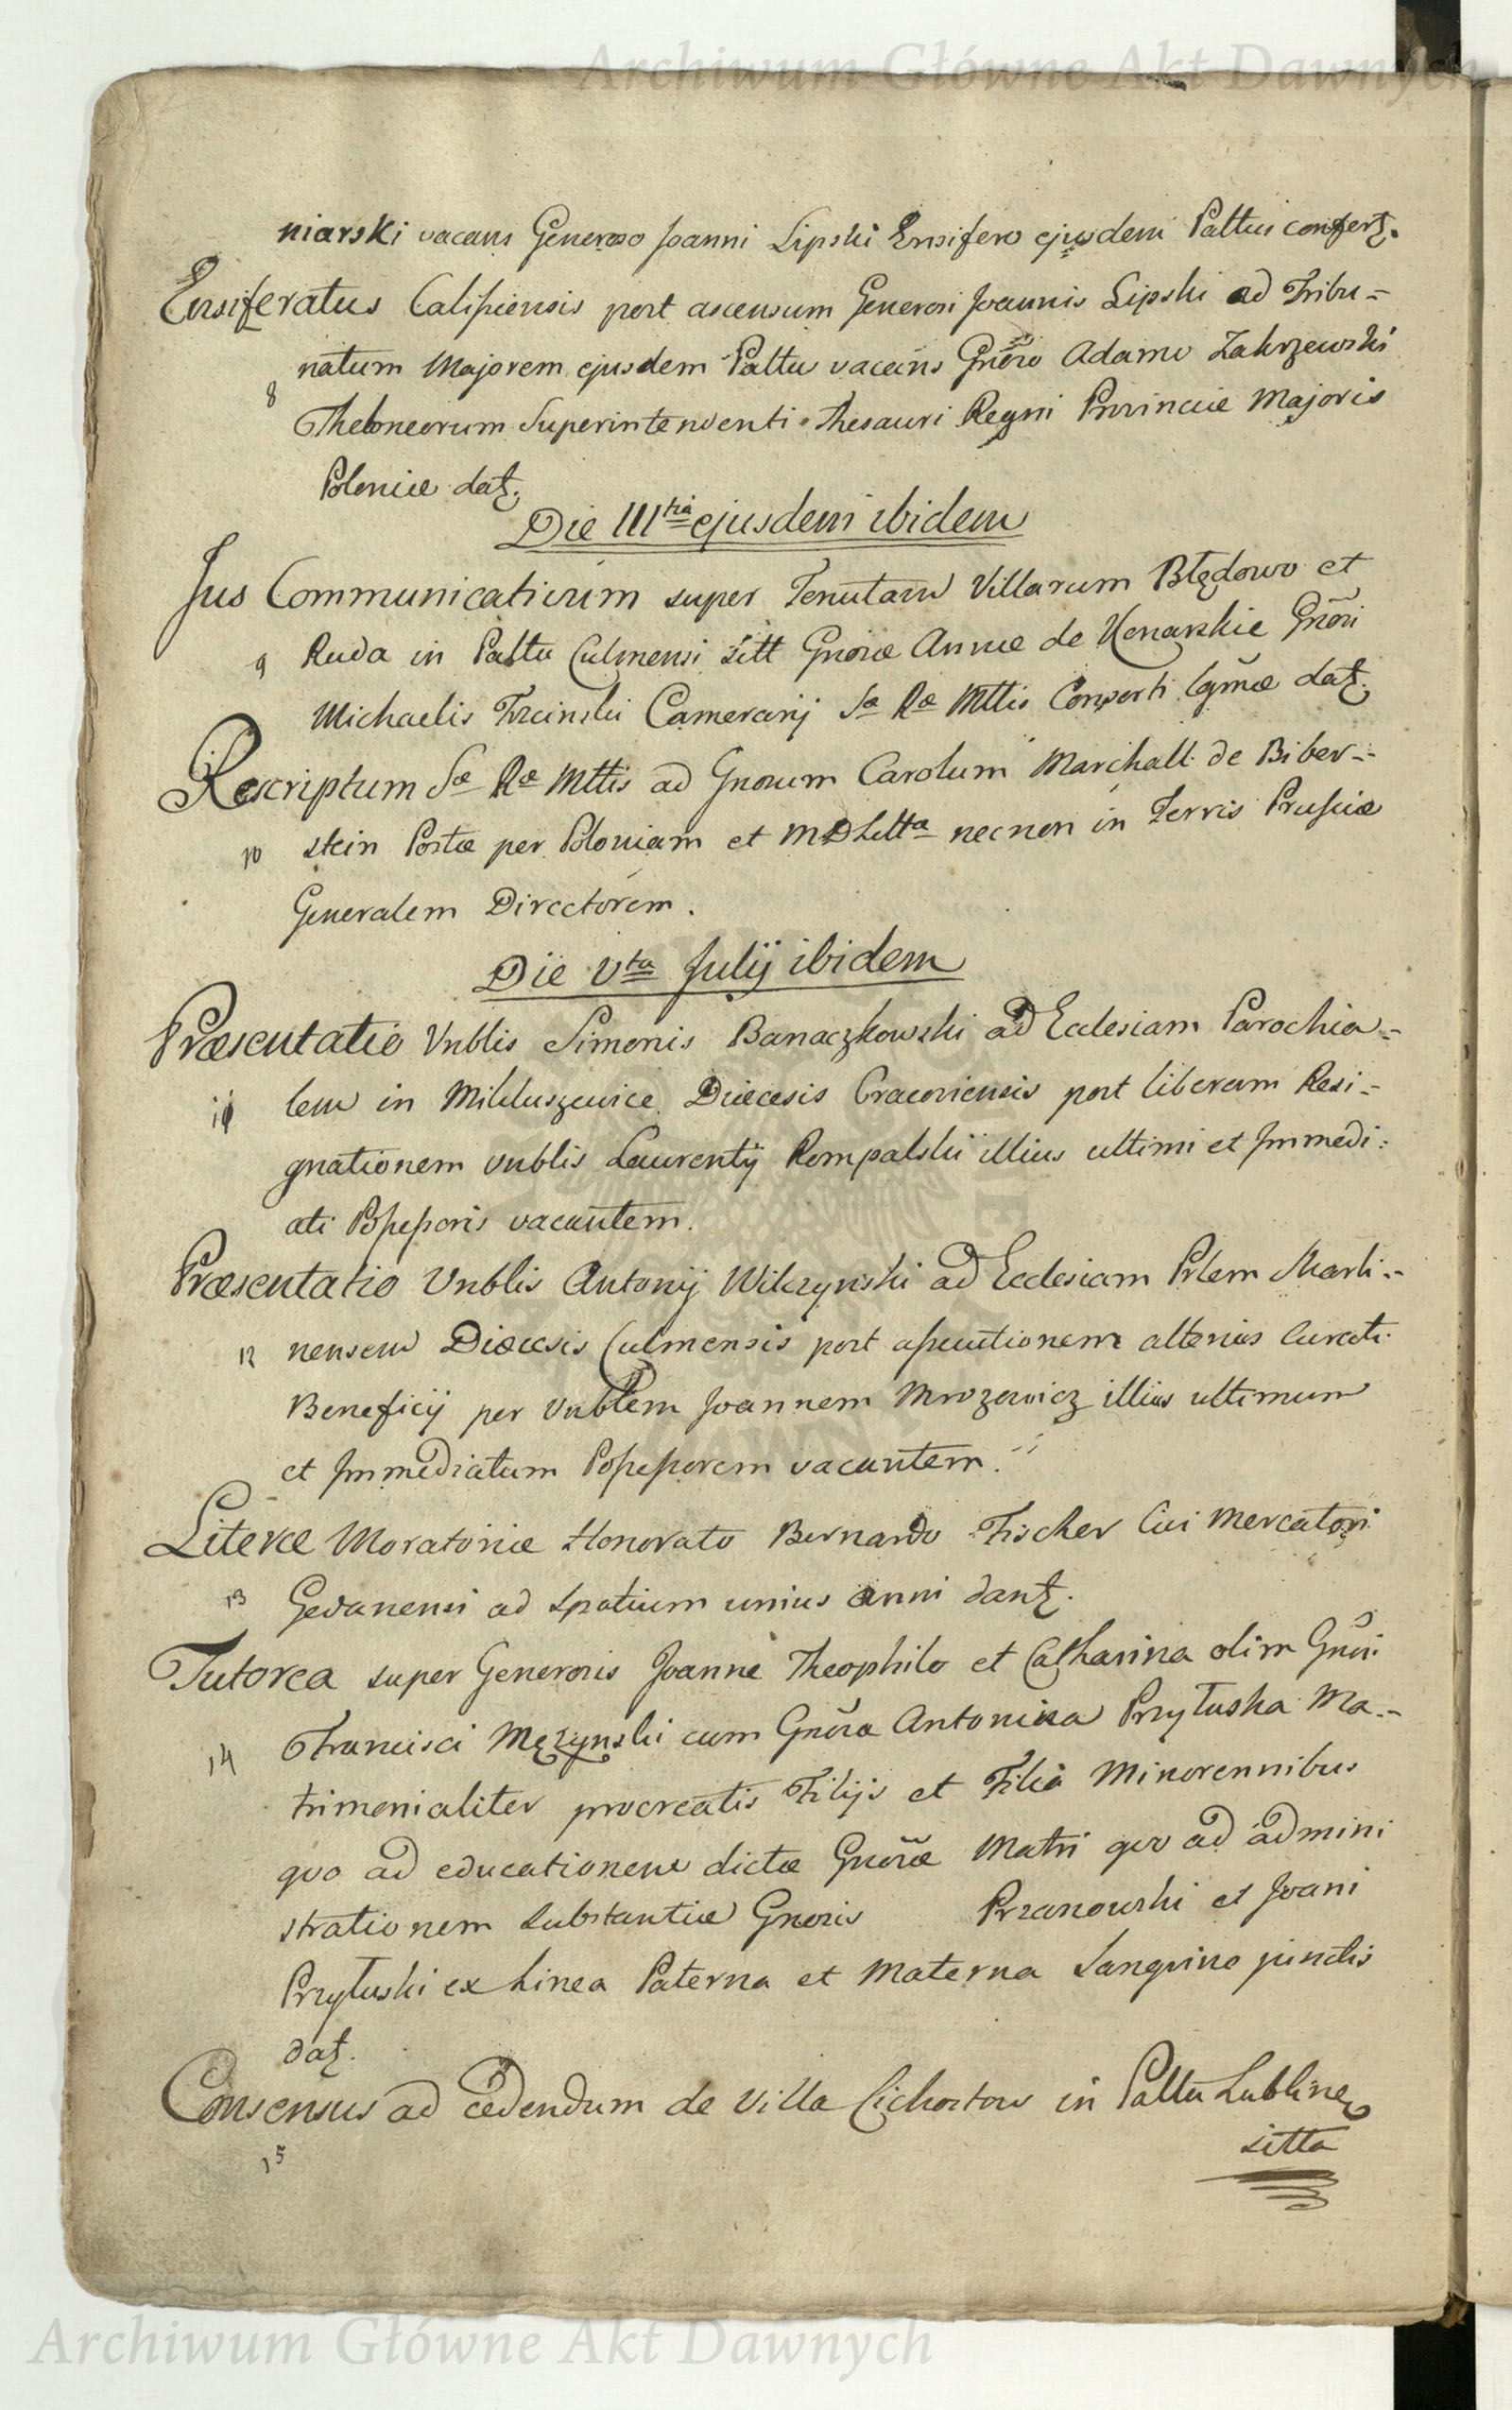 Archiwum Główne Akt Dawnych
niarski vacans Generoso Joanni Lipski Ensifero ejusdem Pallus confert.
Ensiferatus Calisiensis post ascensum Generosi Joannis Lipski ad Tribu=
natum Majorem ejusdem Pallu vacans Gnoso Adamo Zakrzewski
8
Theloneorum Superintendenti Thesauri Regni Provinciæ Majoris
Poloniæ dat.
Die IIItia ejusdem ibidem
Jus Communicativum super Tenutam Villarum Błędowo et
9 Ruda in Pallu Culmensi sitt Gnosæ Annæ de Konarskie Gnosi
Michaelis Trzcinski Camerarij Sæ Ræ Mttis Consorti Lgmæ dat.
Rescriptum Sæ Ræ Mttis ad Gnosum Carolum Marschall de Biber=
10 stein Postæ per Poloniam et MDLitta necnon in Terris Prussiæ
Generalem Directorem.
Die Vta Julij ibidem
Præsentatio Vnblis Simonis Banaczkowski ad Ecclesiam Parochia=
11 lem in Mikluszowice Diæcesis Cracoviensis post liberam Resi=
gnationem Vnblis Laurentij Rompalski illius ultimi et Immedi=
ati Possessoris vacantem.
Præsentatio Vnblis Antonij Wilczynski ad Ecclesiam Prlem Marli=
12 nensem Diæcesis Culmensis post assecutionem alterius Curati
Beneficij per Vnblem Joannem Mrozowicz illius ultimum
et Immediatum Possessorem vacantem.
Literæ Moratoriæ Honorato Bernardo Fischer Civi Mercatori
13 Gedanensi ad spatium unius anni dant.
Tutorea super Generosis Joanne Theophilo et Catharina olim Gnosi
14 Francisci Mężynski cum Gnosa Antonina Przyłuska Ma=
trimonialiter procreatis Filijs et Filia Minorennibus
quo ad educationem dictæ Gnosæ Matri quo ad admini
strationem substantiæ Gnosis Przanowski et Joani
Przyłuski ex Linea Paterna et Materna Sanguine junctis
dat.
Consensus ad cedendum de Villa Cichostow in Pallu Lubline
15
sitta
Archiwum Główne Akt Dawnych